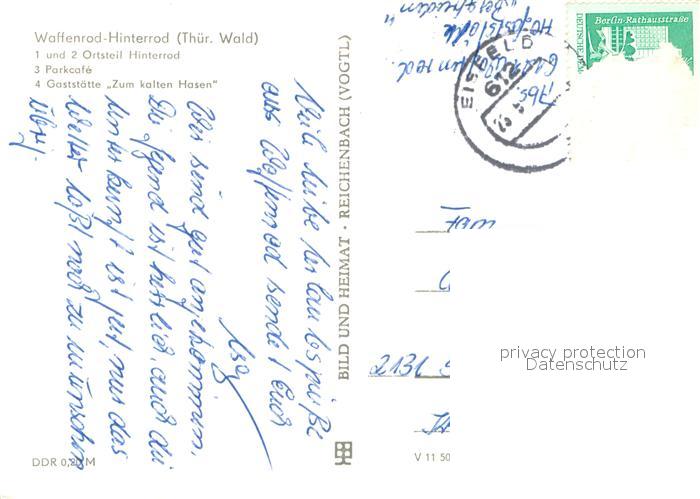 Waffenrod-Hinterrod (Thür. Wald)
1 und 2 Ortsteil Hinterrod
3 Parkcafé
4 Gaststätte „Zum kalten Hasen"
Viele liebe Urlaubsgrüße
aus Waffenrod sendet Euch
Wir sind gut angekommen.
Die Gegend ist herrlich, auch die
Unterkunft ist gut, nur das
Wetter läßt noch zu wünschen
übrig.
BILD UND HEIMAT · REICHENBACH (VOGTL)
DDR 0,20 M
V 11 50
Abs.
Gaststätte
EISFELD
612
Berlin-Rathausstraße
2131
privacy protection
Datenschutz